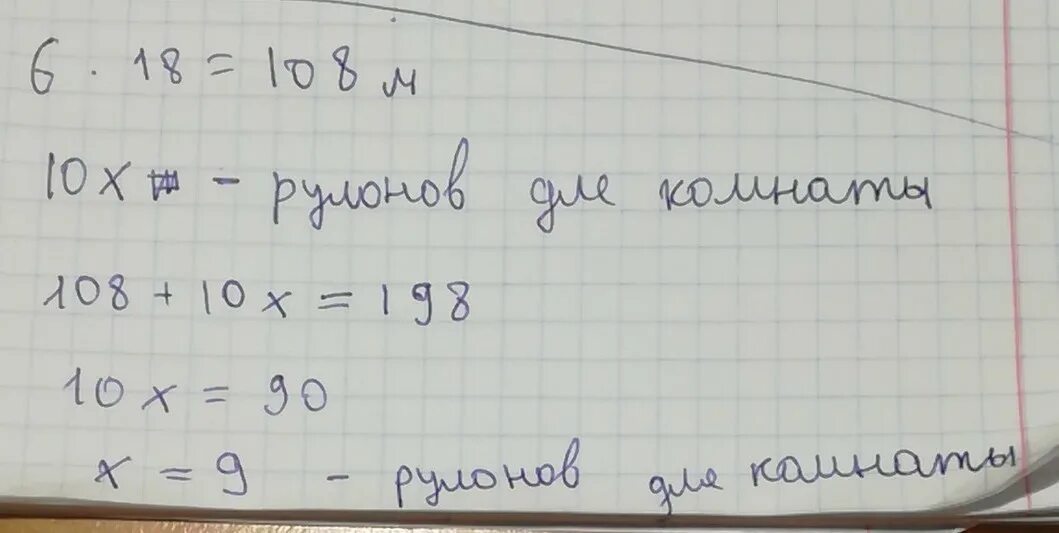 6 · 18 = 108 м
10x - рулонов для комнаты
108 + 10x = 198
10x = 90
x = 9 - рулонов для комнаты